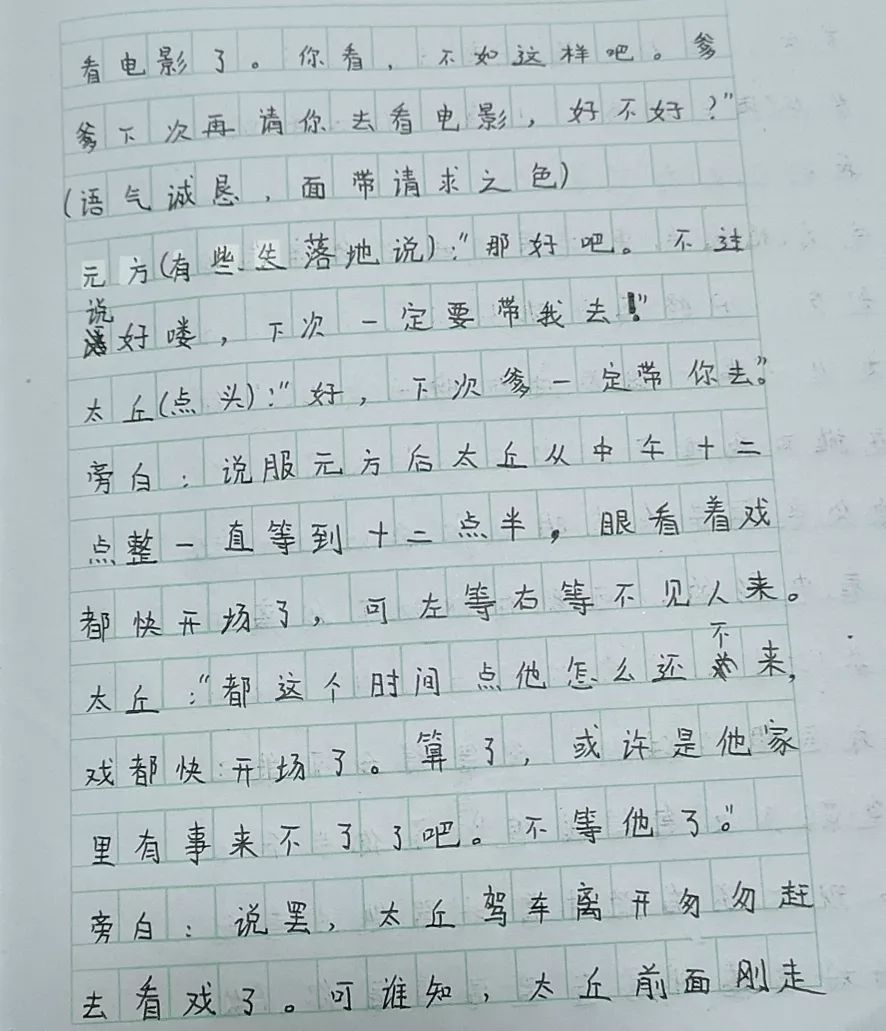 看电影了。你看，不如这样吧。爹
爹下次再请你去看电影，好不好？”
(语气诚恳，面带请求之色)
元方(有些失落地说)：“那好吧。不过
说好喽，下次一定要带我去！”
太丘(点头)：“好，下次爹一定带你去。”
旁白：说服元方后太丘从中午十二
点整一直等到十二点半，眼看着戏
都快开场了，可左等右等不见人来。
太丘：“都这个时间点他怎么还不来，
戏都快开场了。算了，或许是他家
里有事来不了了吧。不等他了。”
旁白：说罢，太丘驾车离开匆匆赶
去看戏了。可谁知，太丘前面刚走